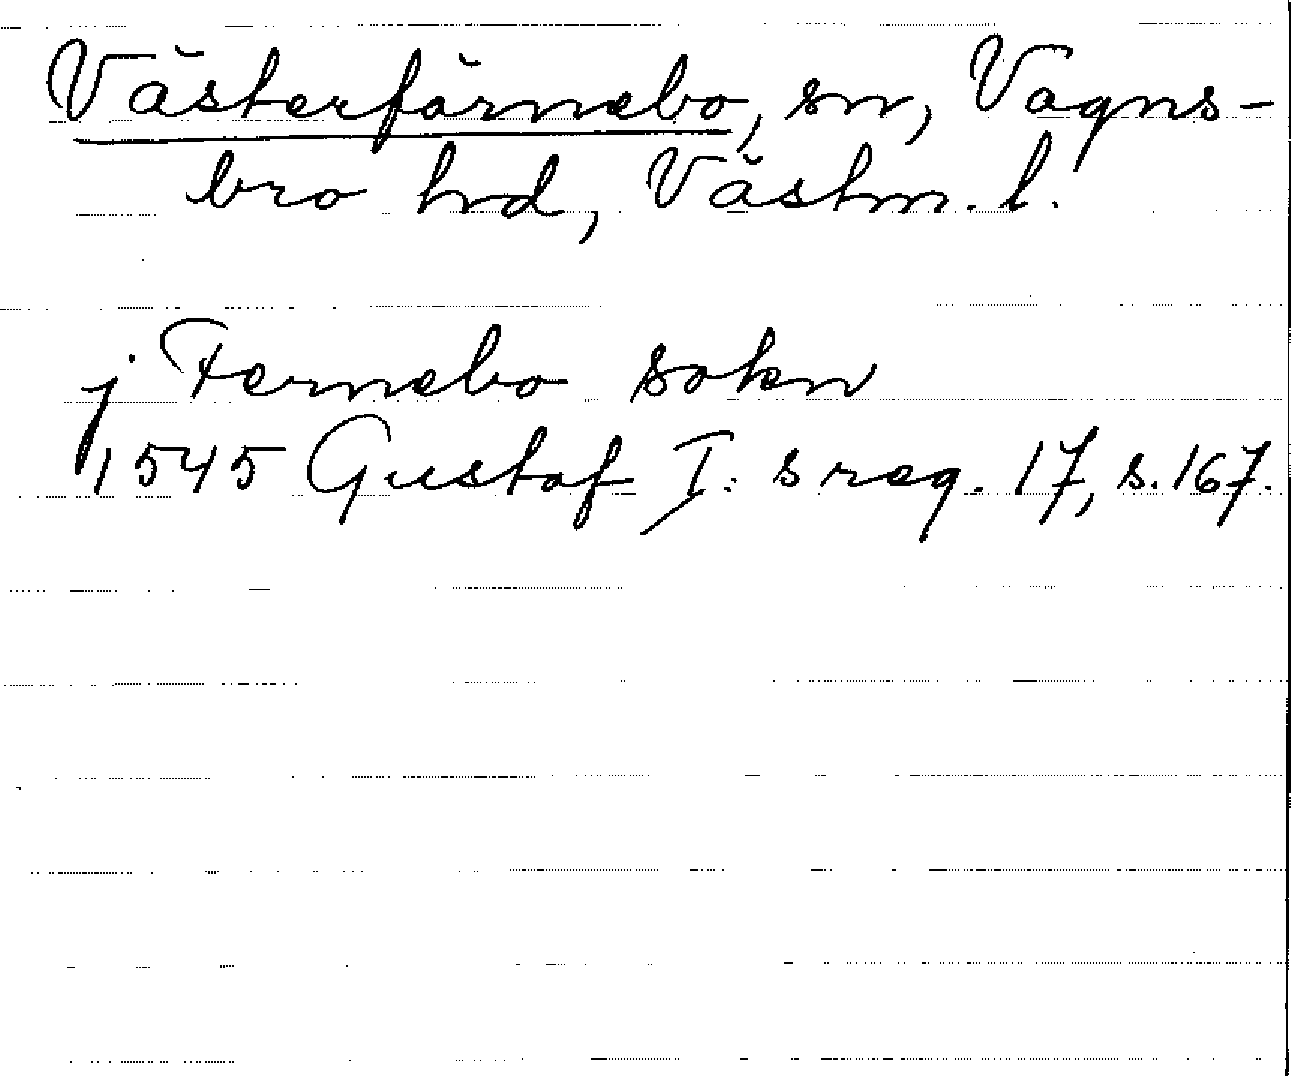 Västerfärnebo, sn, Vagns-
bro hd, Västm. l.
j Fernebo sokn
1545 Gustaf I:s reg. 17, s. 167.